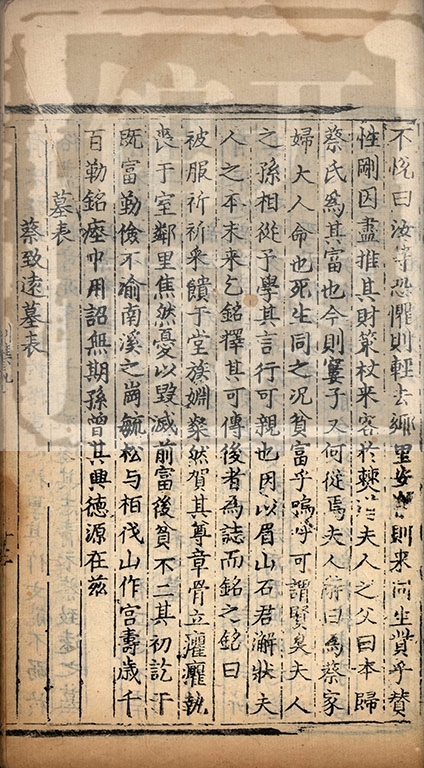 不悅曰汝寧恐懼則輕去鄉里安則来同生貲乎贊
性剛因盡推其財策杖来客於僰道夫人之父曰本歸
蔡氏爲其富也今則窶子又何從焉夫人辭曰爲蔡家
婦大人命也死生同之况貧富乎嗚呼可謂賢矣夫人
之孫相從予學其言行可親也因以眉山石君澥狀夫
人之本末来乞銘擇其可傳後者爲誌而銘之銘曰
被服祈祈釆饋于堂族婣粲然賀其尊章骨立灈灈執
喪于室鄰里焦然憂以毀滅前富後貧不二其初訖于
既富勤儉不渝南溪之崗毓松与柏伐山作宮壽歲千
百勒銘壙中用詔無期孫曾其興德源在茲
墓表
蔡致遠墓表